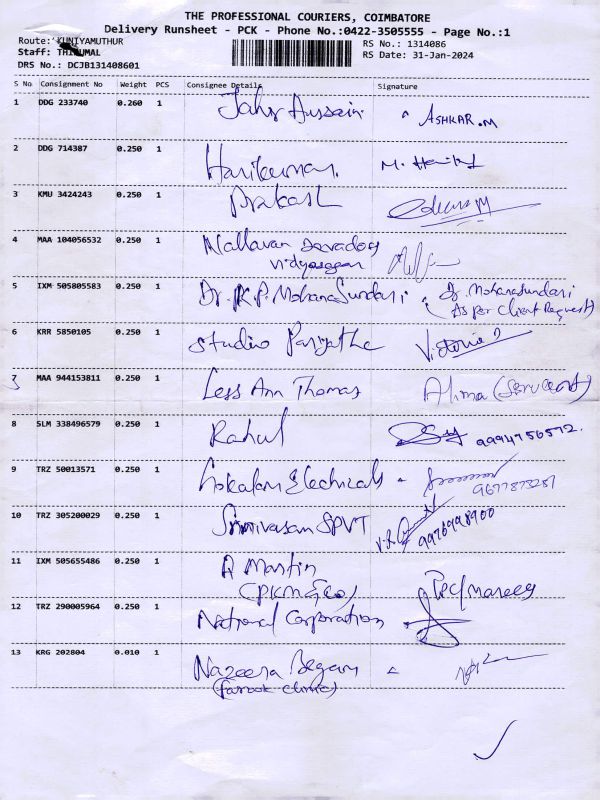 THE PROFESSIONAL COURIERS, COIMBATORE
Delivery Runsheet - PCK - Phone No.:0422-3505555 - Page No.:1
Route: KUNIYAMUTHUR
RS No.: 1314086
Staff: THIRUMAL
RS Date: 31-Jan-2024
DRS No.: DCJB131408601
S No Consignment No Weight PCS Consignee Details Signature
1 DDG 233740 0.260 1 Hussain ASHKAR.M
2 DDG 714387 0.250 1 Harikumar.
3 KMU 3424243 0.250 1 Prakash
4 MAA 104056532 0.250 1 Nallavan
Vidyasagar
5 IXM 505805583 0.250 1 Dr. K.P. MohanaSundari Mohanasundari
(As per Client Request)
6 KRR 5850105 0.250 1 Studio Parijatha Victoria
7 MAA 944153811 0.250 1 Less Ann Thomas Alima (Servent)
8 SLM 338496579 0.250 1 Rahul 9994756572.
9 TRZ 50013571 0.250 1 Gokulam Electricals
10 TRZ 305200029 0.250 1 Srinivasan SPVT 9976998900
11 IXM 505655486 0.250 1 A Martin
(PKM & Co)
12 TRZ 290005964 0.250 1 National Corporation
13 KRG 202804 0.010 1 Nazeera Begam
(farook clinic)